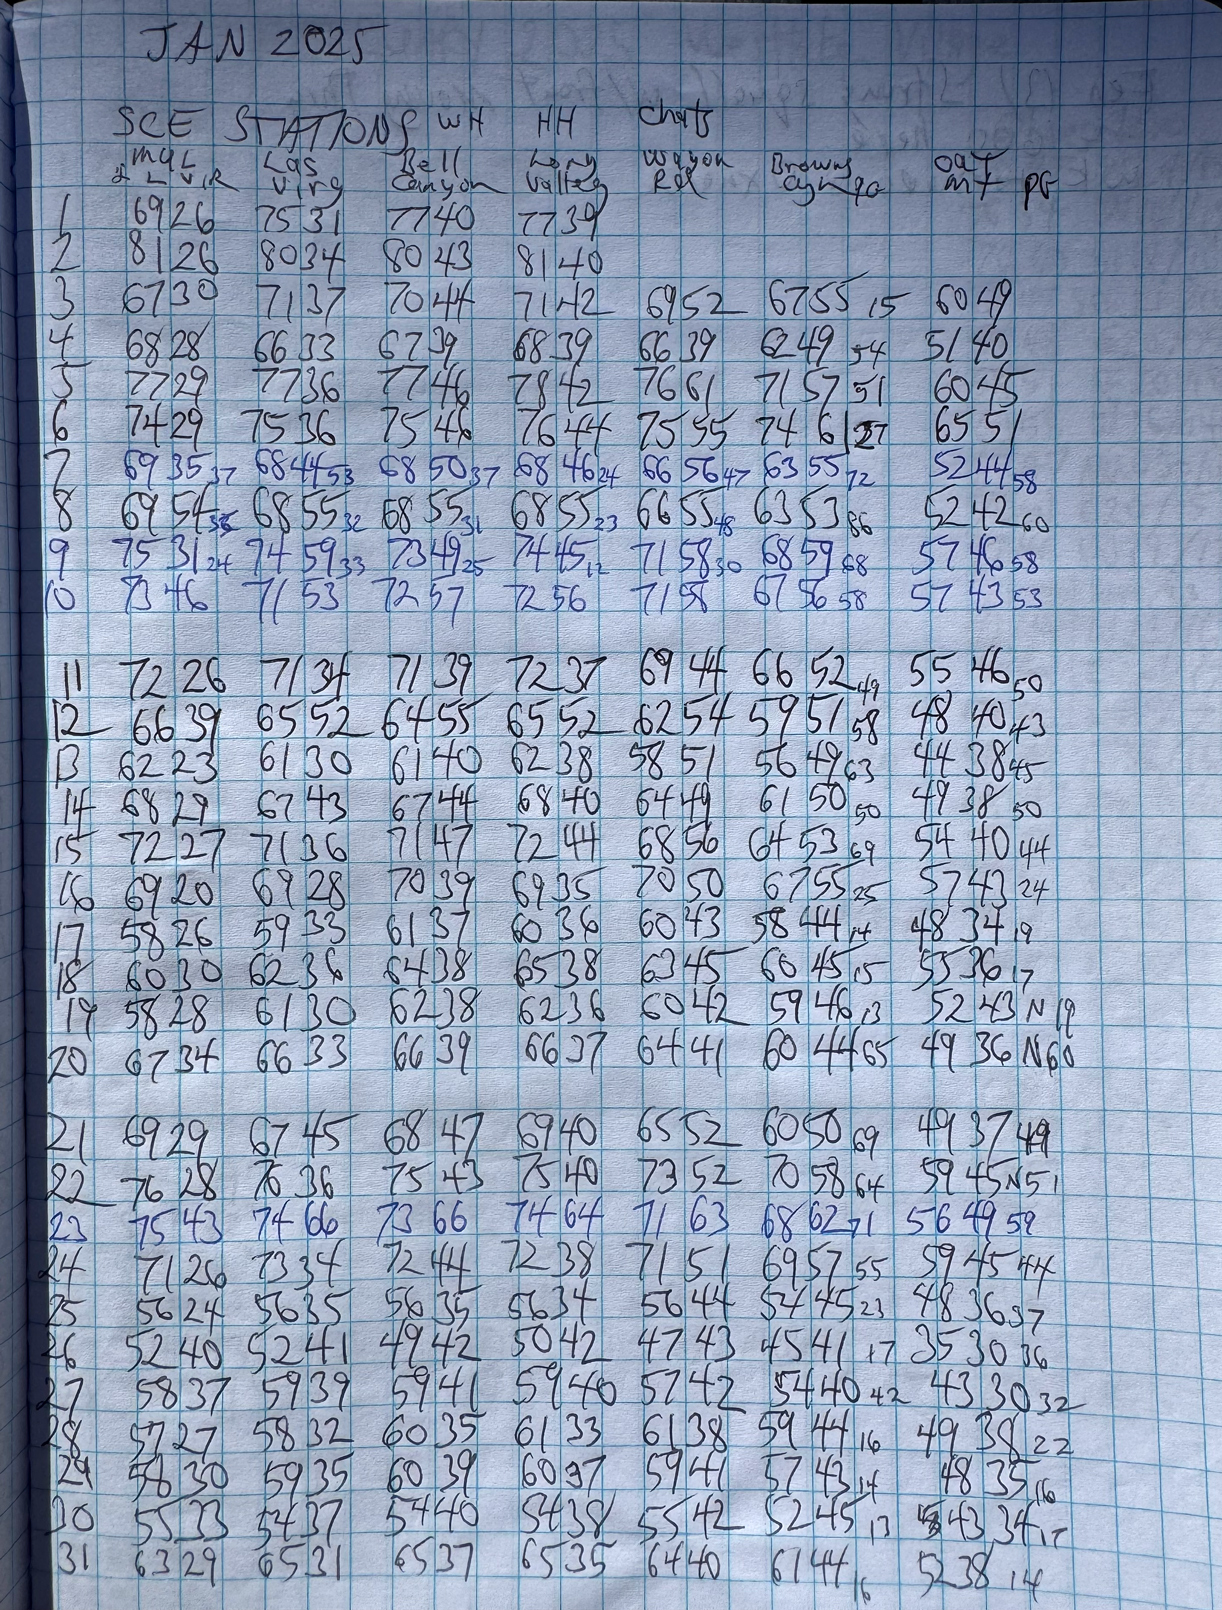 JAN 2025
SCE STATIONS WH HH Chats
Mul Las Bell Long Wagon Browns Oat
& L VIR Virg Canyon Valley Rd Cyn PG MT PG
1 6926 7531 7740 7739
2 8126 8034 8043 8140
3 6730 7137 7044 7142 6952 6755 15 6049
4 6828 6633 6739 6839 6639 6249 54 5140
5 7729 7736 7746 7842 7661 7157 51 6045
6 7429 7536 7546 7644 7555 7461 27 6551
7 6935 37 6844 53 6850 37 6846 24 6656 47 6355 72 5244 58
8 6954 36 6855 32 6855 31 6855 23 6655 48 6353 86 5242 60
9 7531 24 7459 33 7349 25 7445 12 7158 30 6859 68 5746 58
10 7346 7153 7257 7256 7158 6756 58 5743 53
11 7226 7134 7139 7237 6944 6652 49 5546 50
12 6639 6552 6455 6552 6254 5951 58 4840 43
13 6223 6130 6140 6238 5851 5649 63 4438 45
14 6829 6743 6744 6840 6449 6150 50 4938 50
15 7227 7136 7147 7244 6856 6453 69 5440 44
16 6920 6928 7039 6935 7050 6755 25 5743 24
17 5826 5933 6137 6036 6043 5844 14 4834 19
18 6030 6236 6438 6538 6345 6045 15 5536 17
19 5828 6130 6238 6236 6042 5946 13 5243 N 19
20 6734 6633 6639 6637 6441 6044 65 4936 N60
21 6929 6745 6847 6940 6552 6050 69 4937 49
22 7628 7636 7543 7540 7352 7058 64 5945 N51
23 7543 7466 7366 7464 7163 6862 71 5649 59
24 7126 7334 7244 7238 7151 6957 55 5945 44
25 5624 5635 5635 5634 5644 5445 23 4836 37
26 5240 5241 4942 5042 4743 4541 17 3530 36
27 5837 5939 5941 5940 5742 5440 42 4330 32
28 5727 5832 6035 6133 6138 5944 16 4938 22
29 5830 5935 6039 6037 5941 5743 14 4835 16
30 5533 5437 5440 5438 5542 5245 13 4334 17
31 6329 6531 6537 6535 6440 6144 16 5238 14